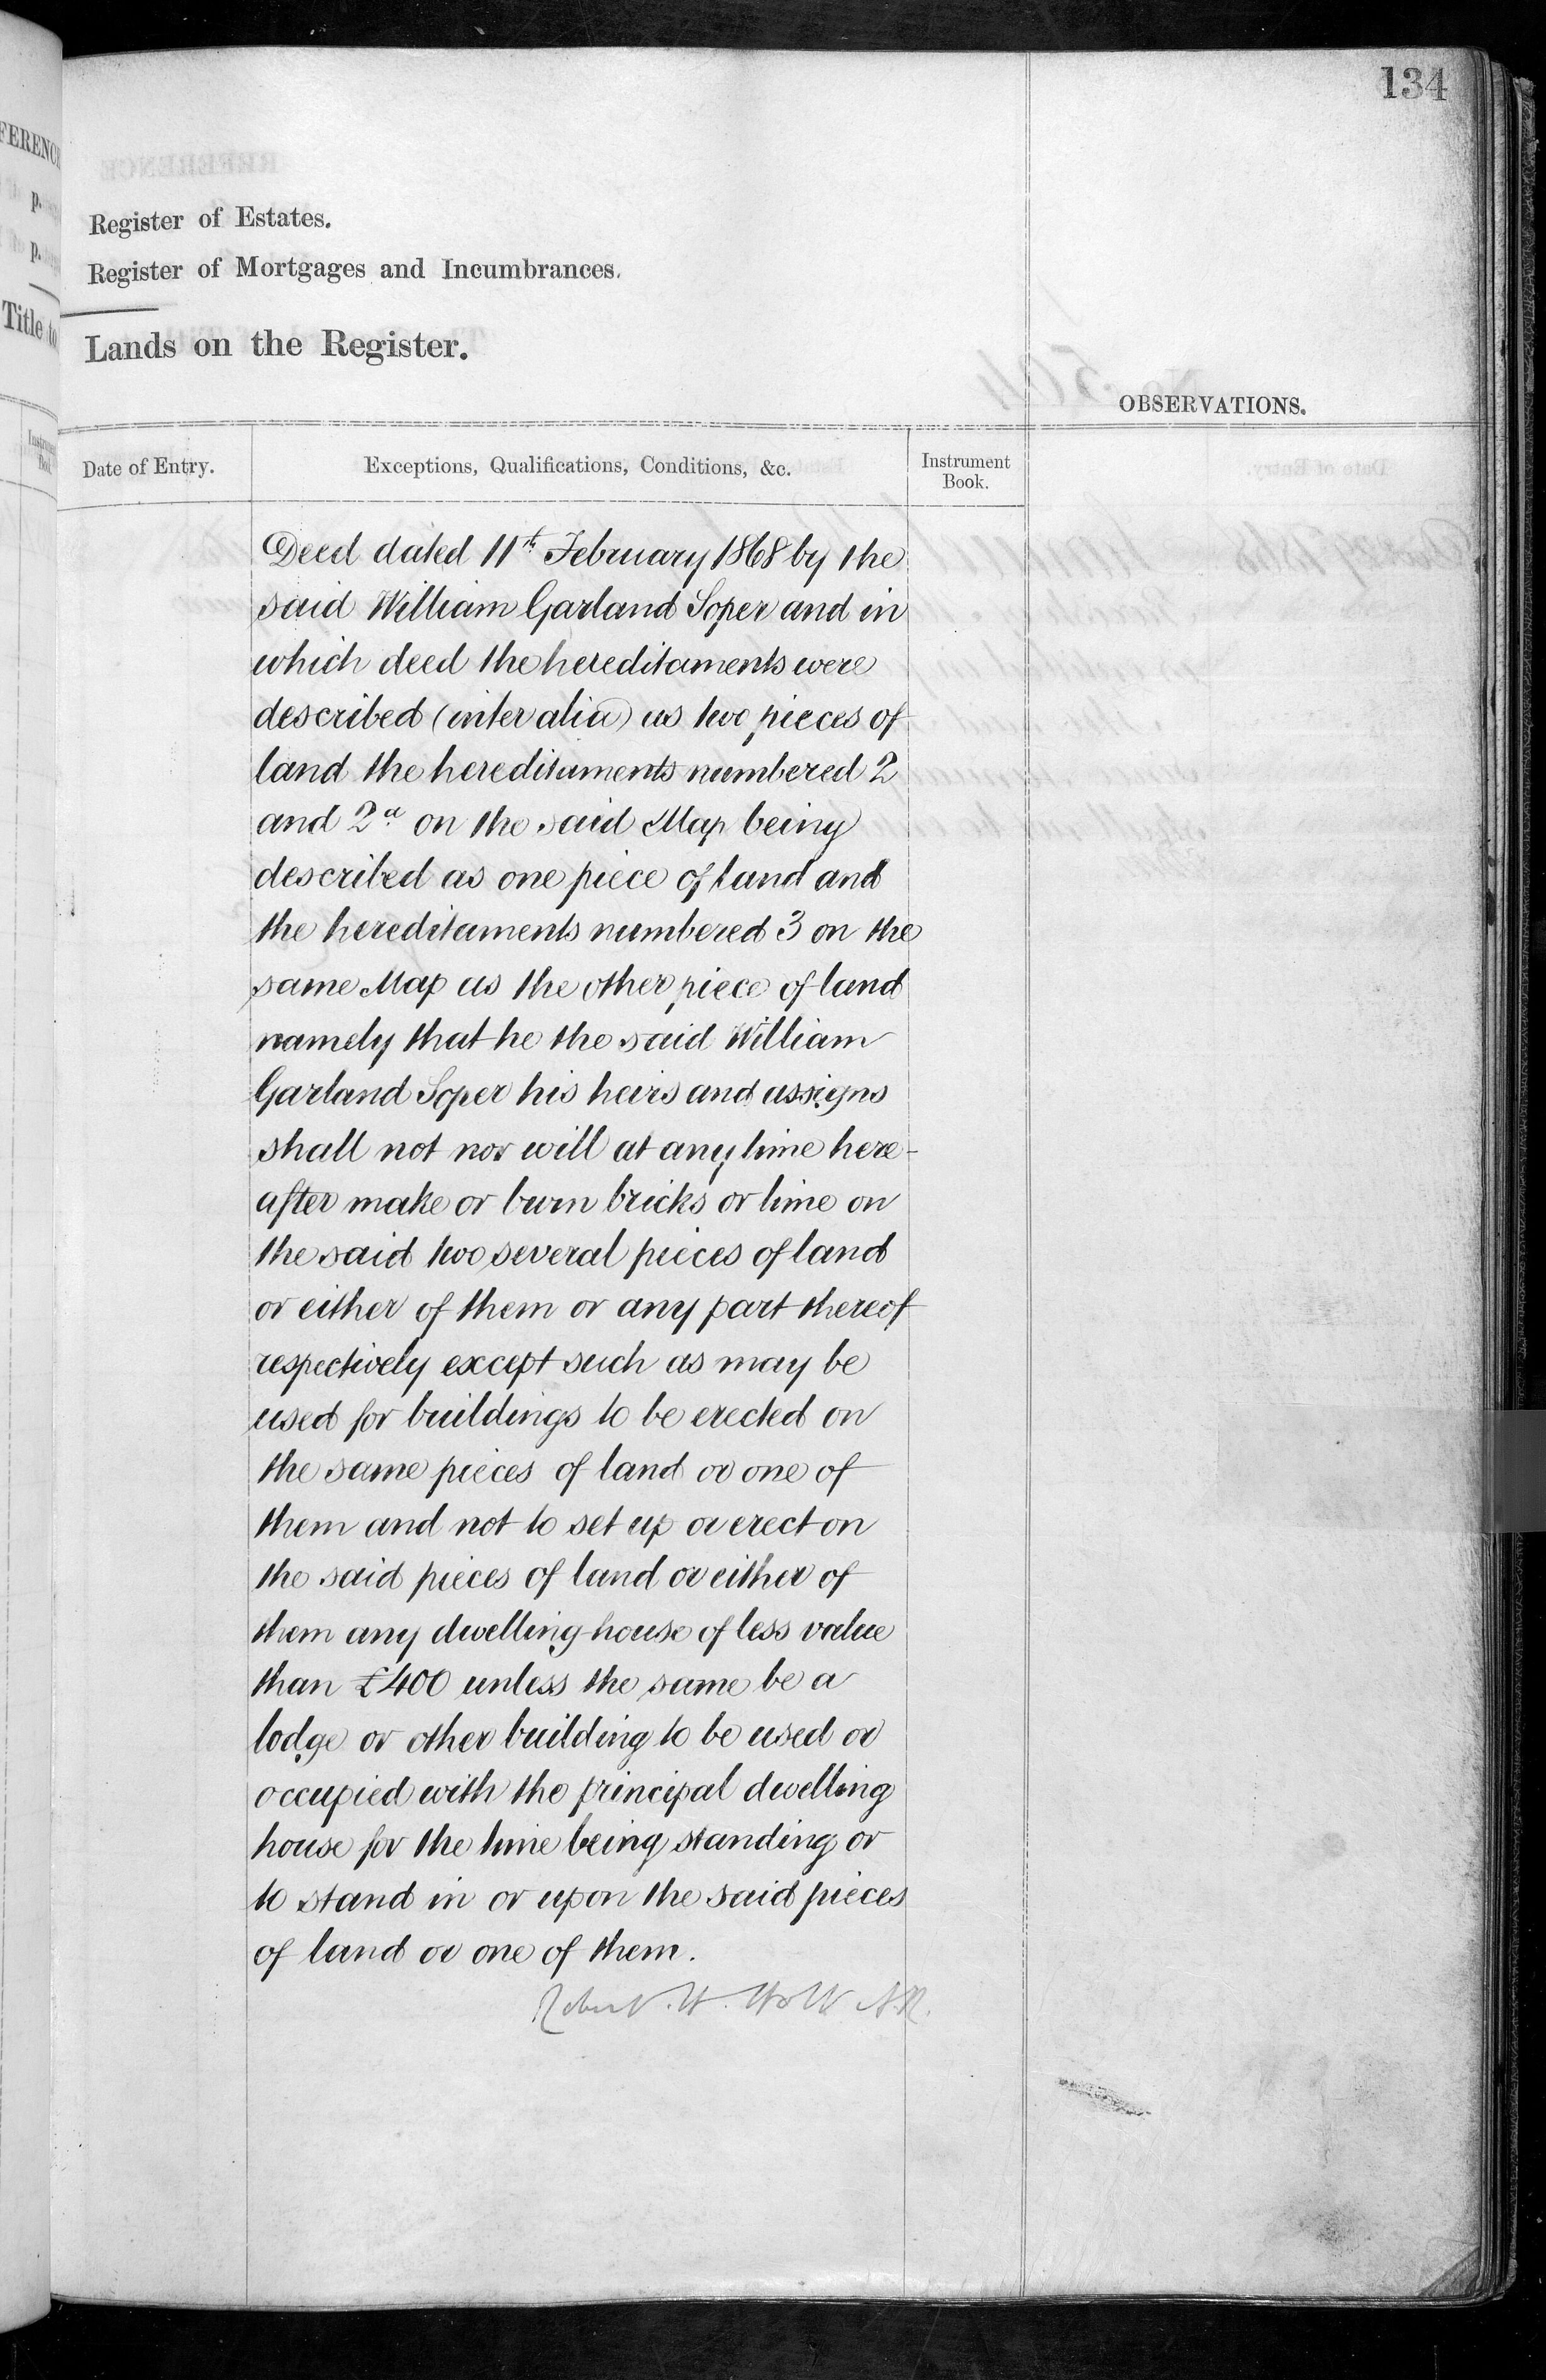 134
FERENCE
p.
p.
Title to
Register of Estates.
Register of Mortgages and Incumbrances.
Lands on the Register.
OBSERVATIONS.
Date of Entry.
Exceptions, Qualifications, Conditions, &c.
Instrument
Book.
Deed dated 11th February 1868 by the
said William Garland Soper and in
which deed the hereditaments were
described (inter alia) as two pieces of
land the hereditaments numbered 2
and 2a on the said Map being
described as one piece of land and
the hereditaments numbered 3 on the
same Map as the other piece of land
namely that he the said William
Garland Soper his heirs and assigns
shall not nor will at any time here-
after make or burn bricks or lime on
the said two several pieces of land
or either of them or any part thereof
respectively except such as may be
used for buildings to be erected on
the same pieces of land or one of
them and not to set up or erect on
the said pieces of land or either of
them any dwelling-house of less value
than £400 unless the same be a
lodge or other building to be used or
occupied with the principal dwelling
house for the time being standing or
to stand in or upon the said pieces
of land or one of them.
Robert. H. Holt A.R.